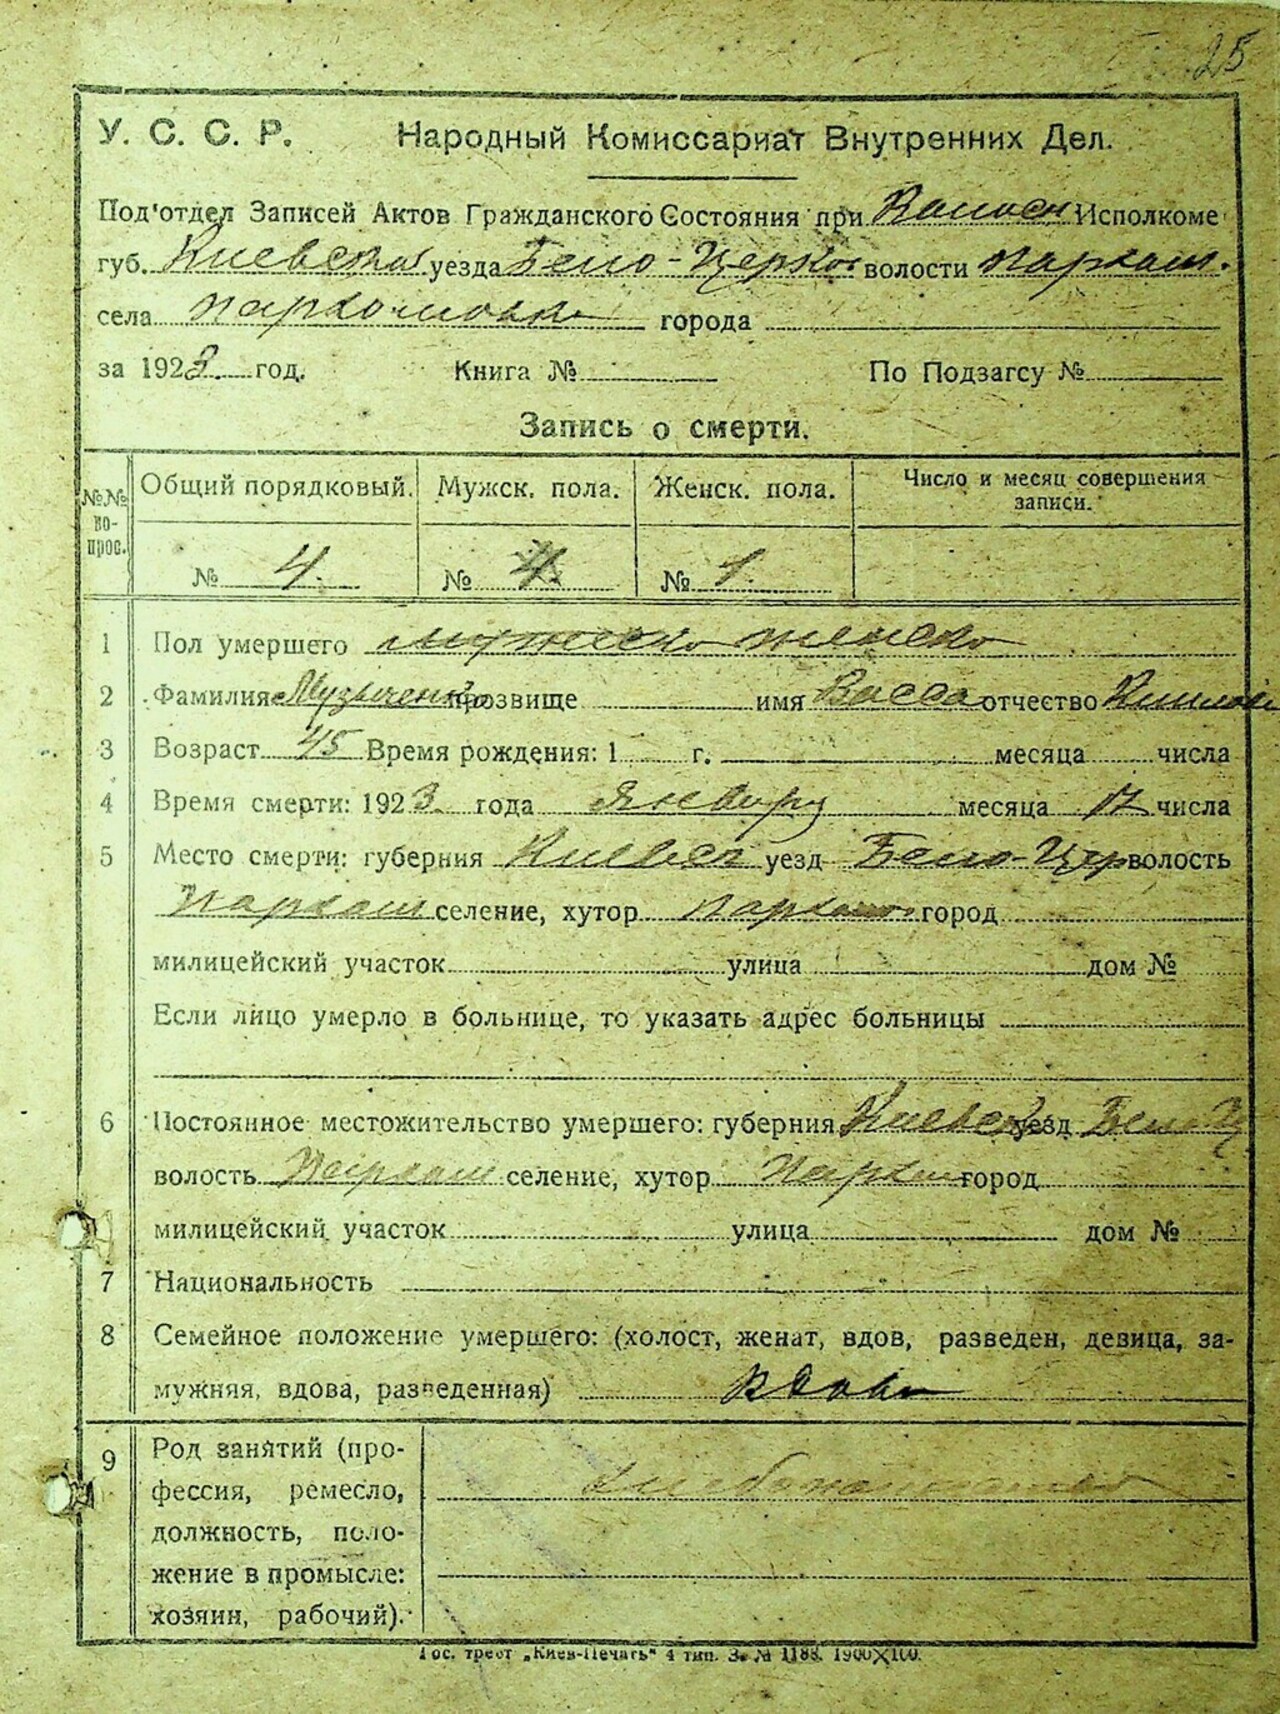 25
У. С. С. Р. Народный Комиссариат Внутренних Дел.
Под'отдел Записей Актов Гражданского Состояния при Волосн Исполкоме
губ. Киевская уезда Бело-Церков волости Пархом.
села Пархомовка города
за 1923. год. Книга № По Подзагсу №
Запись о смерти.
№№ во-прос. Общий порядковый. Мужск. пола. Женск. пола. Число и месяц совершения записи.
№ 4. № 4. № 1.
1 Пол умершего мужеско женско
2 Фамилия Музыченко прозвище имя Васса отчество
3 Возраст 45 Время рождения: 1 г. месяца числа
4 Время смерти: 1923 года Января месяца 17 числа
5 Место смерти: губерния Киевск уезд Бело-Цер волость
Пархом селение, хутор Пархом. город
милицейский участок улица дом №
Если лицо умерло в больнице, то указать адрес больницы
6 Постоянное местожительство умершего: губерния Киевск уезд Бело-Ц
волость Пархом селение, хутор Пархом город
милицейский участок улица дом №
7 Национальность
8 Семейное положение умершего: (холост, женат, вдов, разведен, девица, за-
мужняя, вдова, разведенная) вдова
9 Род занятий (про-
фессия, ремесло,
должность, поло-
жение в промысле:
хозяин, рабочий).
Гос. трест „Киев-Печать" 4 тип. З. № 1188. 1900×100.